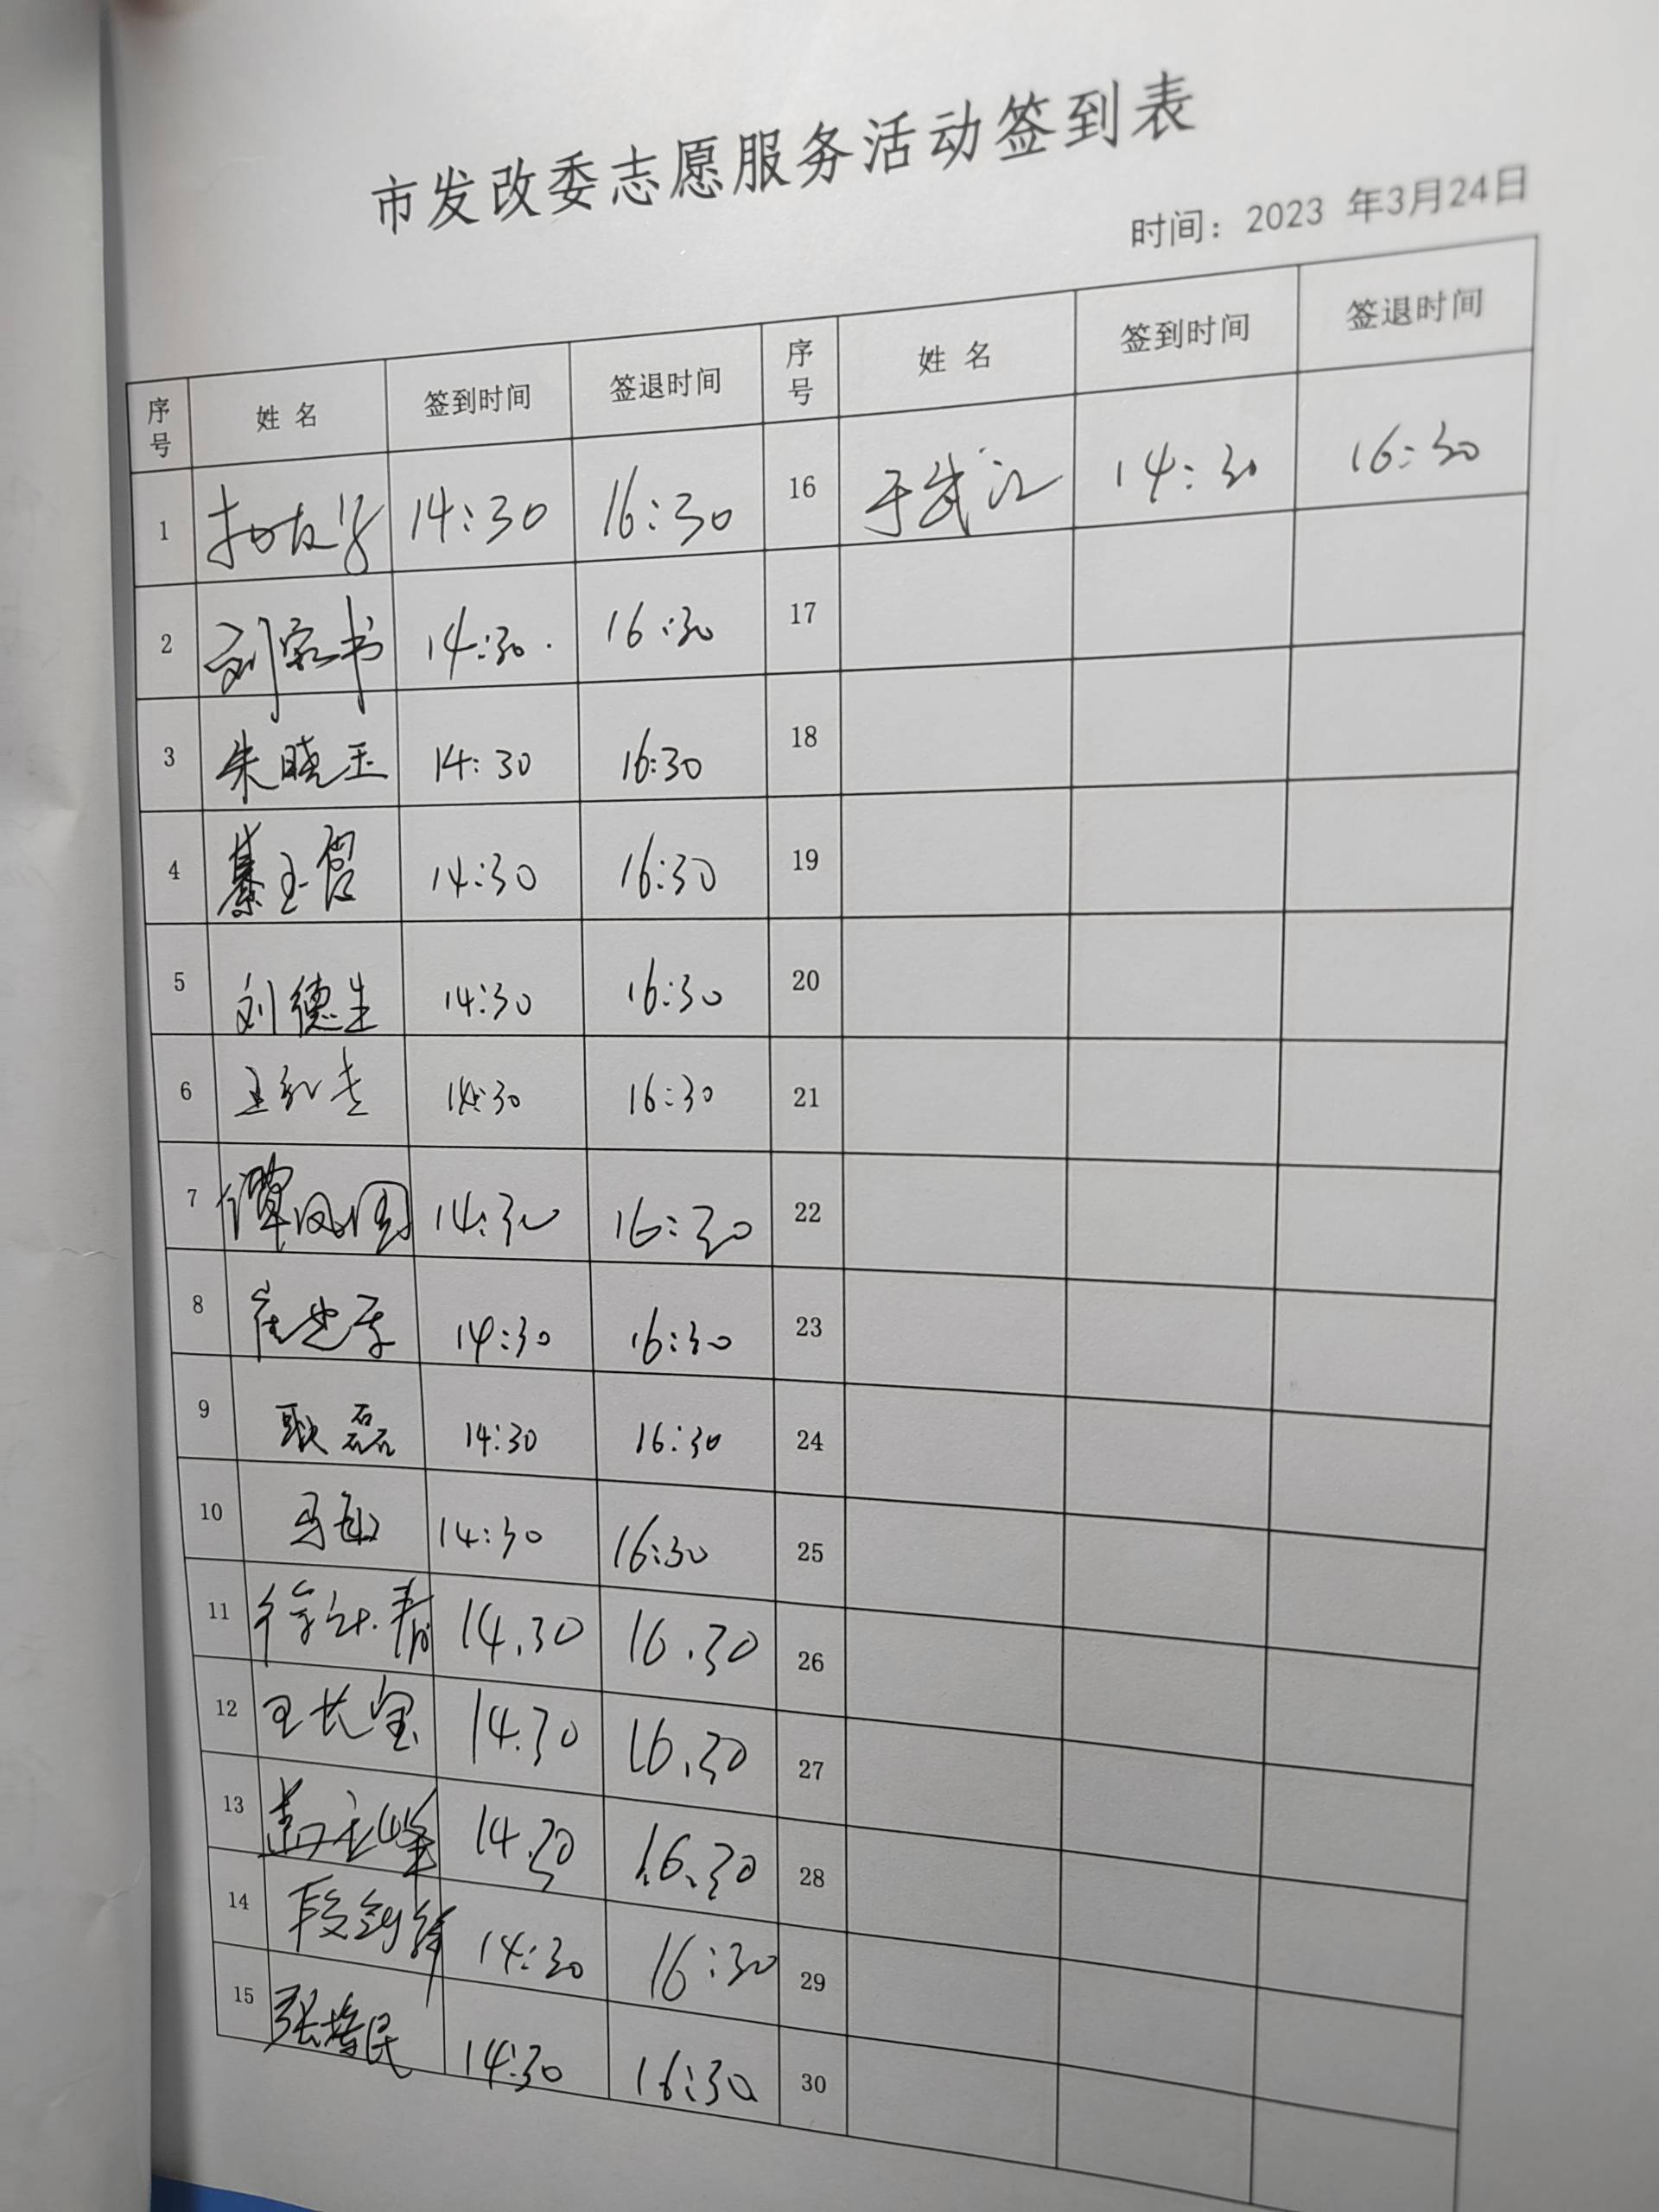 市发改委志愿服务活动签到表
时间：2023 年3月24日
序号 姓 名 签到时间 签退时间 序号 姓 名 签到时间 签退时间
1 14:30 16:30 16 于武江 14:30 16:30
2 刘家书 14:30. 16:30 17
3 朱晓玉 14:30 16:30 18
4 綦玉 14:30 16:30 19
5 刘德生 14:30 16:30 20
6 王 14:30 16:30 21
7 谭凤国 14:30 16:30 22
8 崔 14:30 16:30 23
9 耿磊 14:30 16:30 24
10 马敏 14:30 16:30 25
11 徐 春 14.30 16.30 26
12 王长宝 14.30 16.30 27
13 峰 14.30 16.30 28
14 段剑锋 14:30 16:30 29
15 张培民 14:30 16:30 30